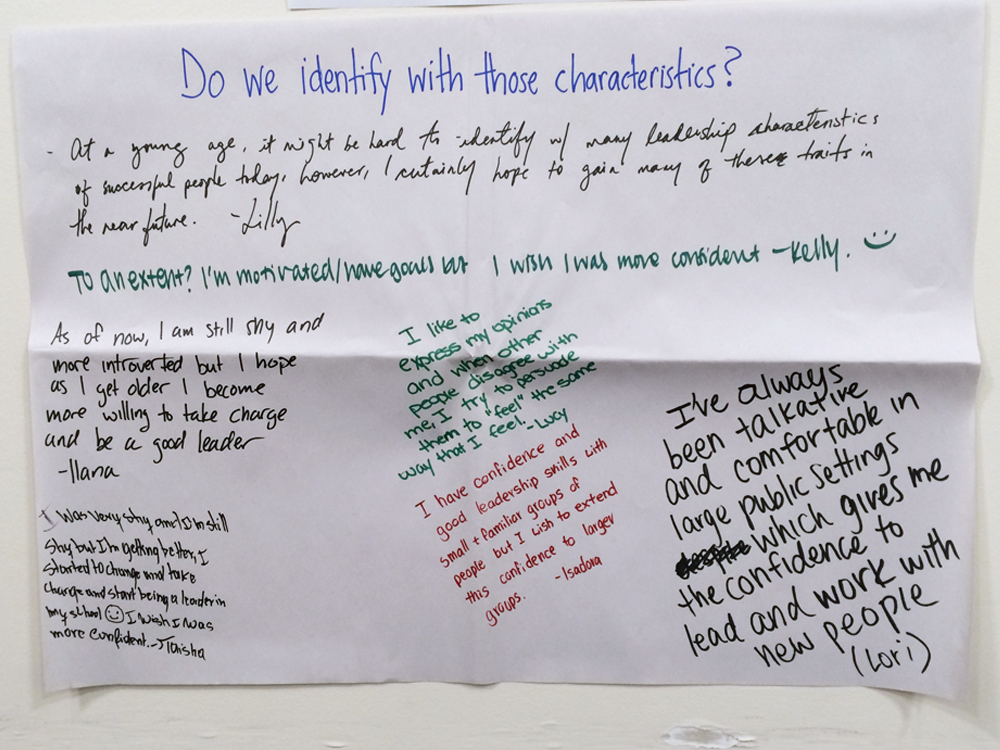 Do we identify with those characteristics?
- At a young age, it might be hard to identify w/ many leadership characteristics
of successful people today, however, I certainly hope to gain many of these traits in
the near future. -Lilly
To an extent? I'm motivated/have goals but I wish I was more confident -Kelly. :)
As of now, I am still shy and
more introverted but I hope
as I get older I become
more willing to take charge
and be a good leader
-Ilana
I was very shy and I'm still
shy, but I'm getting better, I
started to change and take
charge and start being a leader in
my school ☺ I wish I was
more confident. -Tanisha
I like to
express my opinions
and when other
people disagree with
me, I try to persuade
them to "feel" the same
way that I feel. -Lucy
I have confidence and
good leadership skills with
small + familiar groups of
people but I wish to extend
this confidence to larger
groups. -Isadora
I've always
been talkative
and comfortable in
large public settings
which gives me
the confidence to
lead and work with
new people
(Lori)